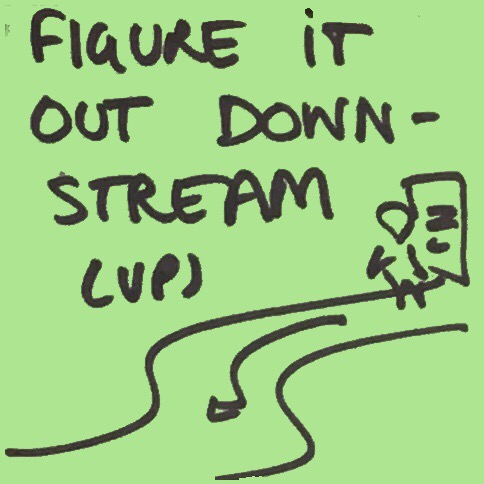 FIGURE IT
OUT DOWN-
STREAM
(UP)